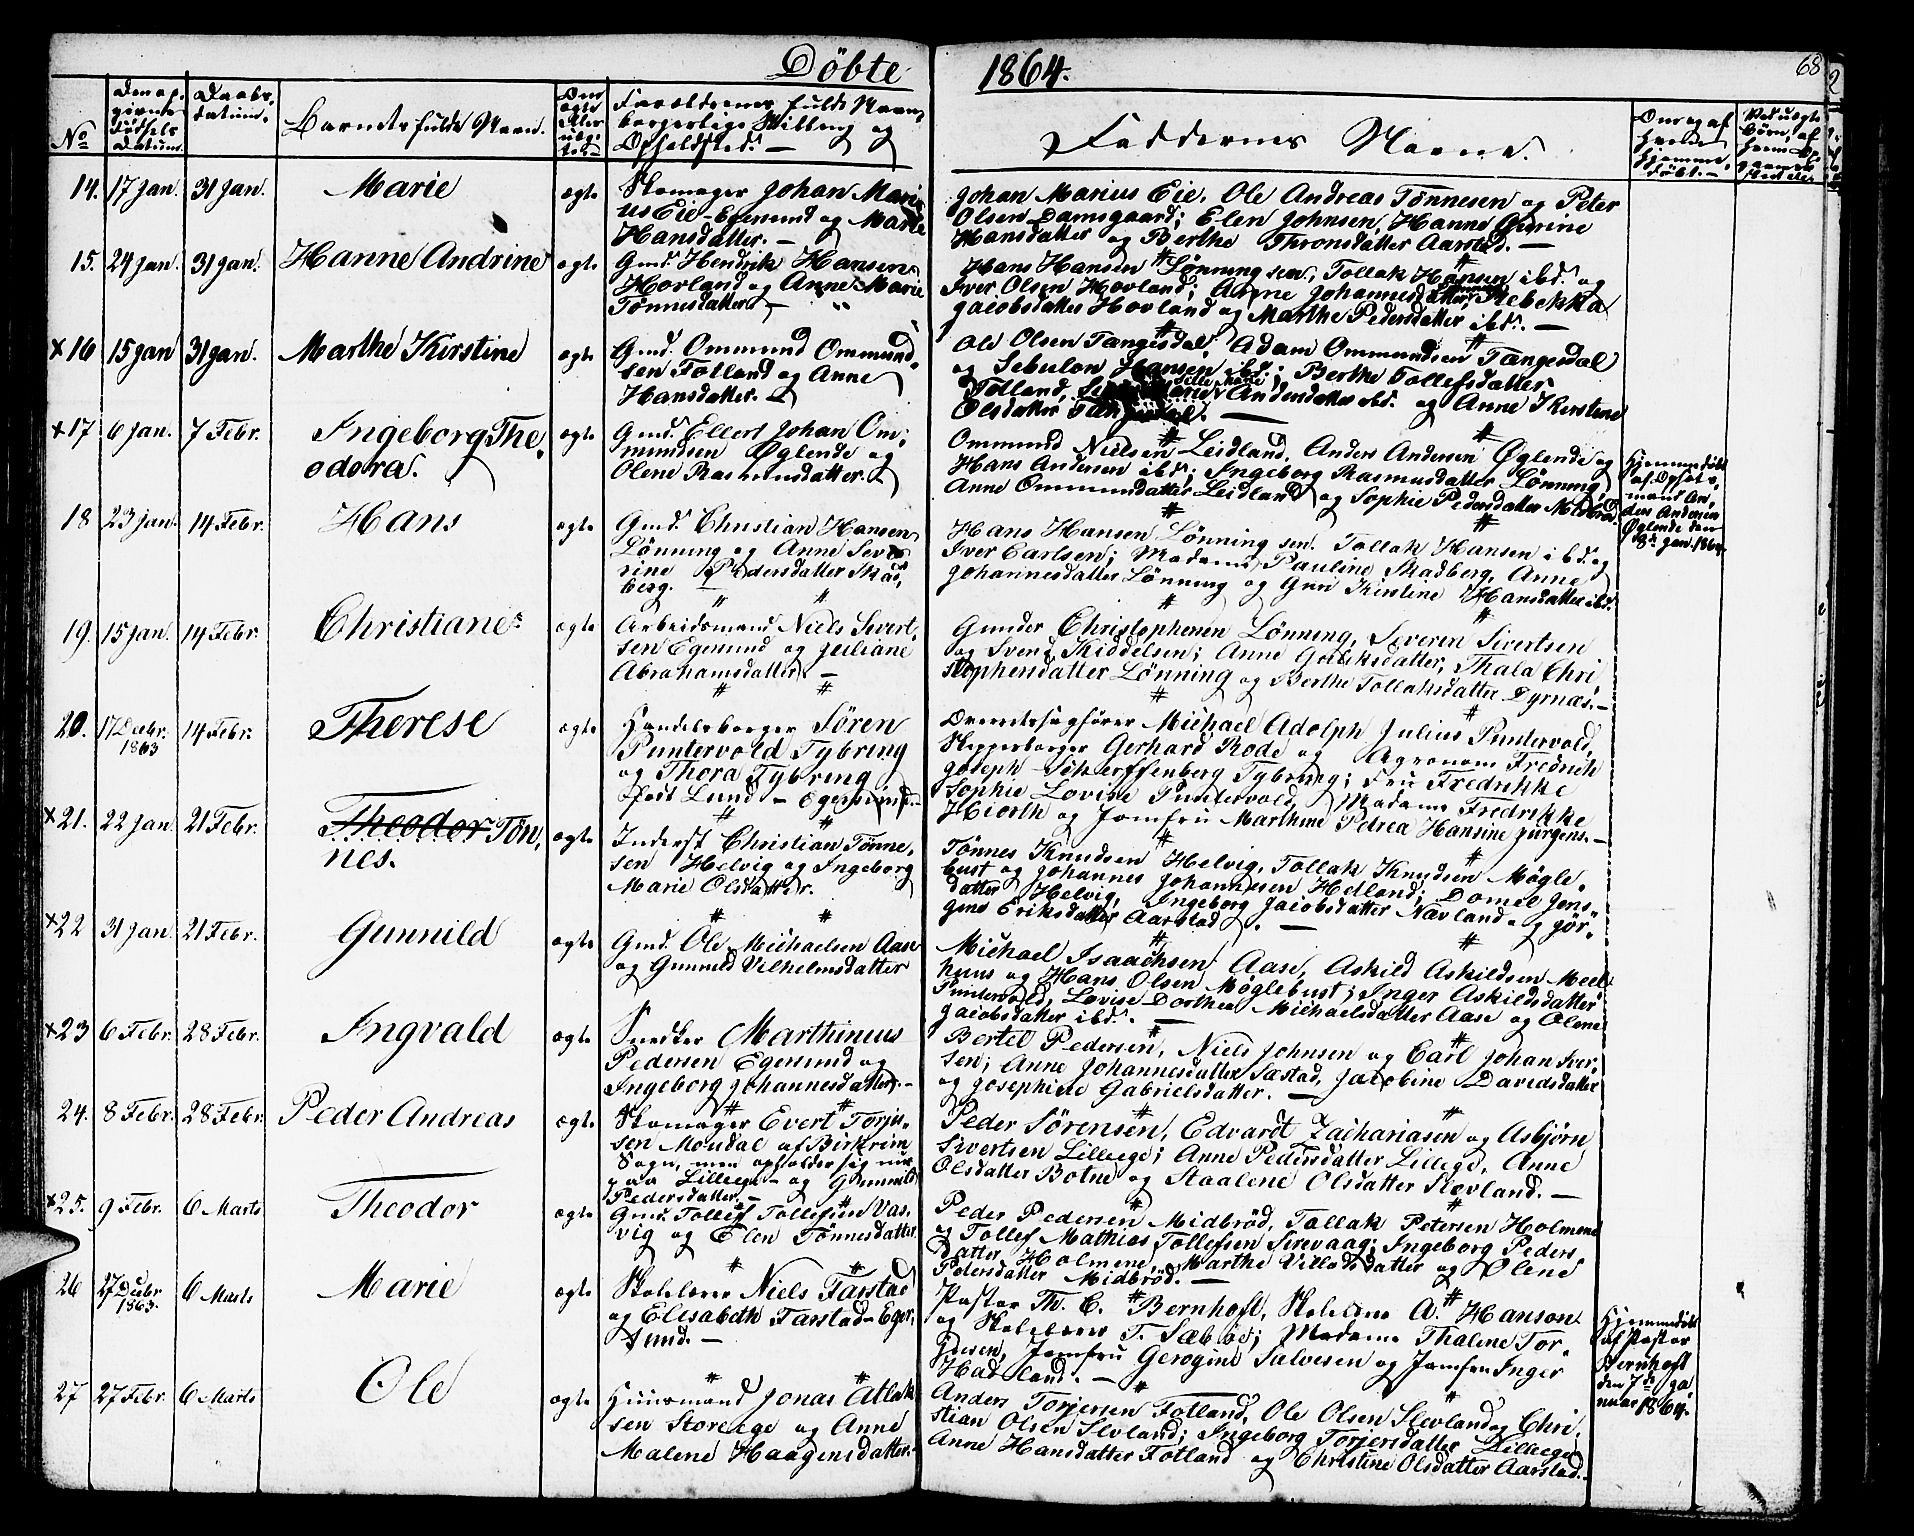 Döbte 1864.
68
No
Barnets fulde Navn.
Faddernes Navne.
14. 17 Jan. 31 Jan. Marie ægte Skomager Johan Mari
us Eie Egersund og Marie
Hansdatter. —
Johan Marius Eie, Ole Andreas Tönnesen og Peter
Olsen Damsgaard; Elen Johnsen, Hanne
Hansdatter og Berthe Thronsdatter Aarstad. —
15. 24 Jan. 31 Jan. Hanne Andrine ægte Gmd. Hendrik Hansen
Hovland og Anne Marie
Tönnesdatter —
Hans Hansen Lönning sen., Tollak Hansen ibd. og
Iver Olsen Hovland; Anne Johannesdatter Lönning, Rebekka
Jacobsdatter Hovland og Marthe Pedersdatter ibd. —
x16 15 Jan 31 Jan. Marthe Kirstine ægte Gmd. Ommund Ommund
sen Fotland og Anne
Hansdatter.
Ole Olsen Tængesdal, Adam Ommundsen Tængesdal
og Sebulon Hansen ibd.; Berthe Tollefsdatter
Fotland, Andersdatter ibd. og Anne Kirstine
Olsdatter Tængesdal. —
x17 6 Jan. 7 Febr. Ingeborg The
odora. ægte Gmd. Ellert Johan Om
mundsen Öglende og
Olene Rasmusdatter.
Ommund Nielsen Leidland, Anders Andersen Öglende og
Hans Andersen ibd.; Ingeborg Rasmusdatter Lönning,
Anne Ommundsdatter Leidland og Sophie Pedersdatter Midbröd.
Hjemmedöbt
af
mand An
ders Andersen
Öglende den
8de Jan. 1864.
18 23 Jan. 14 Febr. Hans ægte Gmd. Christian Hansen
Lönning og Anne Seve
rine Pedersdatter Skad
berg. —
Hans Hansen Lönning sen. Tollak Hansen ibd. og
Iver Carlsen; Madame Pauline Skadberg, Anne
Johannesdatter Lönning og Guri Kirstine Hansdatter ibd.
19. 15 Jan. 14 Febr. Christiane ægte Arbeidsmand Niels Sivert
sen Egersund og Juliane
Abrahamsdatter. —
Gunder Christophersen Lönning, Severen Sivertsen
og Svend Kiddelsen; Anne Gulliksdatter, Thala Chri
stophersdatter Lönning og Berthe Tollaksdatter Dyrnæs. —
20. 17 Decbr. 1863 14 Febr. Therese ægte Handelsborger Sören
Puntervold Tybring
og Thora Tybring
Lund — Egersund. —
Overretssagförer Michael Adolph Julius Puntervold,
Skipperborger Gerhard Rode og Agronom Fredrich
Joseph Scherffenberg Tybring; Fru Fredrikke
Sophie Lovise Puntervold, Madame Fredrikke
Hiorth og Jomfru Marthine Petrea Hansine Jurgens. —
x21. 22 Jan 21 Febr. Theodor Tön
nes. ægte Inderst Christian Tönne
sen Helvig og Ingeborg
Marie Olsdatter.
Tönnes Knudsen Helvig, Tollak Knudsen Mögle
bust og Johannes Johannesen Hetland; Domel Jens
datter Helvig, Ingeborg Jacobsdatter Nævland og Jör
gine Eriksdatter Aarstad. —
x22 31 Jan. 21 Febr. Gunnild ægte Gmd. Ole Michaelsen Aase
og Gunnild Vilhelmsdatter
Michael Isaachsen Aase, Askild Askildsen Meel
huus og Hans Olsen Möglebust; Inger Askildsdatter
Puntervold, Lovise Dorthea Michaelsdatter Aase og Olene
Jacobsdatter ibd. —
x23 6 Febr. 28 Febr. Ingvald ægte Snedker Marthinius
Pedersen Egersund og
Ingeborg Johannesdatter. —
Bertel Pedersen, Niels Johnsen og Carl Johan Iver
sen; Anne Johannesdatter Sæstad, Jacobine Davidsdatter
og Josephine Gabrielsdatter. —
24. 8 Febr. 28 Febr. Peder Andreas ægte Skomager Evert Torje
sen Moudal af Birkrem
Sogn, men opholder sig nu
paa Lilleege — og Gunnild
Pedersdatter. —
Peder Sörensen, Edvardt Zachariasen og Asbjörn
Sivertsen Lilleege; Anne Pedersdatter Lilleege, Anne
Olsdatter Botne og Staalene Olsdatter Slevland. —
x25. 9 Febr. 6 Marts Theodor ægte Gmd. Tollef Tollefsen Vas
vig og Elen Tönnesdatter.
Peder Pedersen Midbröd, Tallak Petersen Holmene
og Tollef Mathias Tollefsen Sirevaag; Ingeborg Peders
datter Holmene, Marthe Villadsdatter og Olene
Petersdatter Midbröd. —
26 27 Decbr 1863. 6 Marts Marie ægte Skolelærer Niels Tarstad
og Elisabeth Tarstad — Eger
sund. —
Pastor Th. C. Bernhoft, Skolelærer A. Hanson
og Skolelærer T. Sæbbö; Madame Thalene Tor
gersen, Jomfru Gerogine Salvesen og Jomfru Inger
Hadland. —
Hjemmedöbt
af Pastor
Bernhoft
den 7de Ja
nuar 1864.
27 27 Febr. 6 Marts Ole ægte Huusmand Jonas Atlak
sen Storeege og Anne
Malene Haagensdatter. —
Anders Torjersen Fotland, Ole Olsen Slevland og Chri
stian Olsen Slevland; Ingeborg Torjersdatter Lilleege
Anne Hansdatter Fotland og Christine Olsdatter Aarstad. —